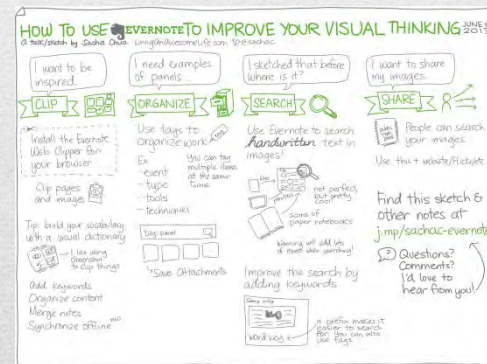 HOW TO USE EVERNOTE TO IMPROVE YOUR VISUAL THINKING JUNE 5
2011
A talk/sketch by Sacha Chua LivingAnAwesomeLife.com @sachac
I want to be
inspired.
CLIP
Install the Evernote
Web Clipper for
your browser
Clip pages
and images
Tip: build your vocabulary
with a visual dictionary
I like using
to clip things
Add keywords
Organize content
Merge notes
Synchronize offline
I need examples
of panels...
ORGANIZE
Use tags to
organize work
Ex.
- event
- type
- tools
- techniques
You can tag
multiple items
at the same
time.
tag:panel
Save attachments
I sketched that before
Where is it?
SEARCH
Use Evernote to search
handwritten text in
images!
not perfect,
but pretty
cool!
Scans of
paper notebooks
Warning: will add lots
of when searching!
Improve the search by
adding keywords
Some title
word:key
a prefix makes it
easier to search
for. You can also
use tags.
I want to share
my images.
SHARE
People can search
your images
Use this + website/Flickr/etc
Find this sketch &
other notes at
j.mp/sachac-evernote
Questions?
Comments?
I'd love to
hear from you!